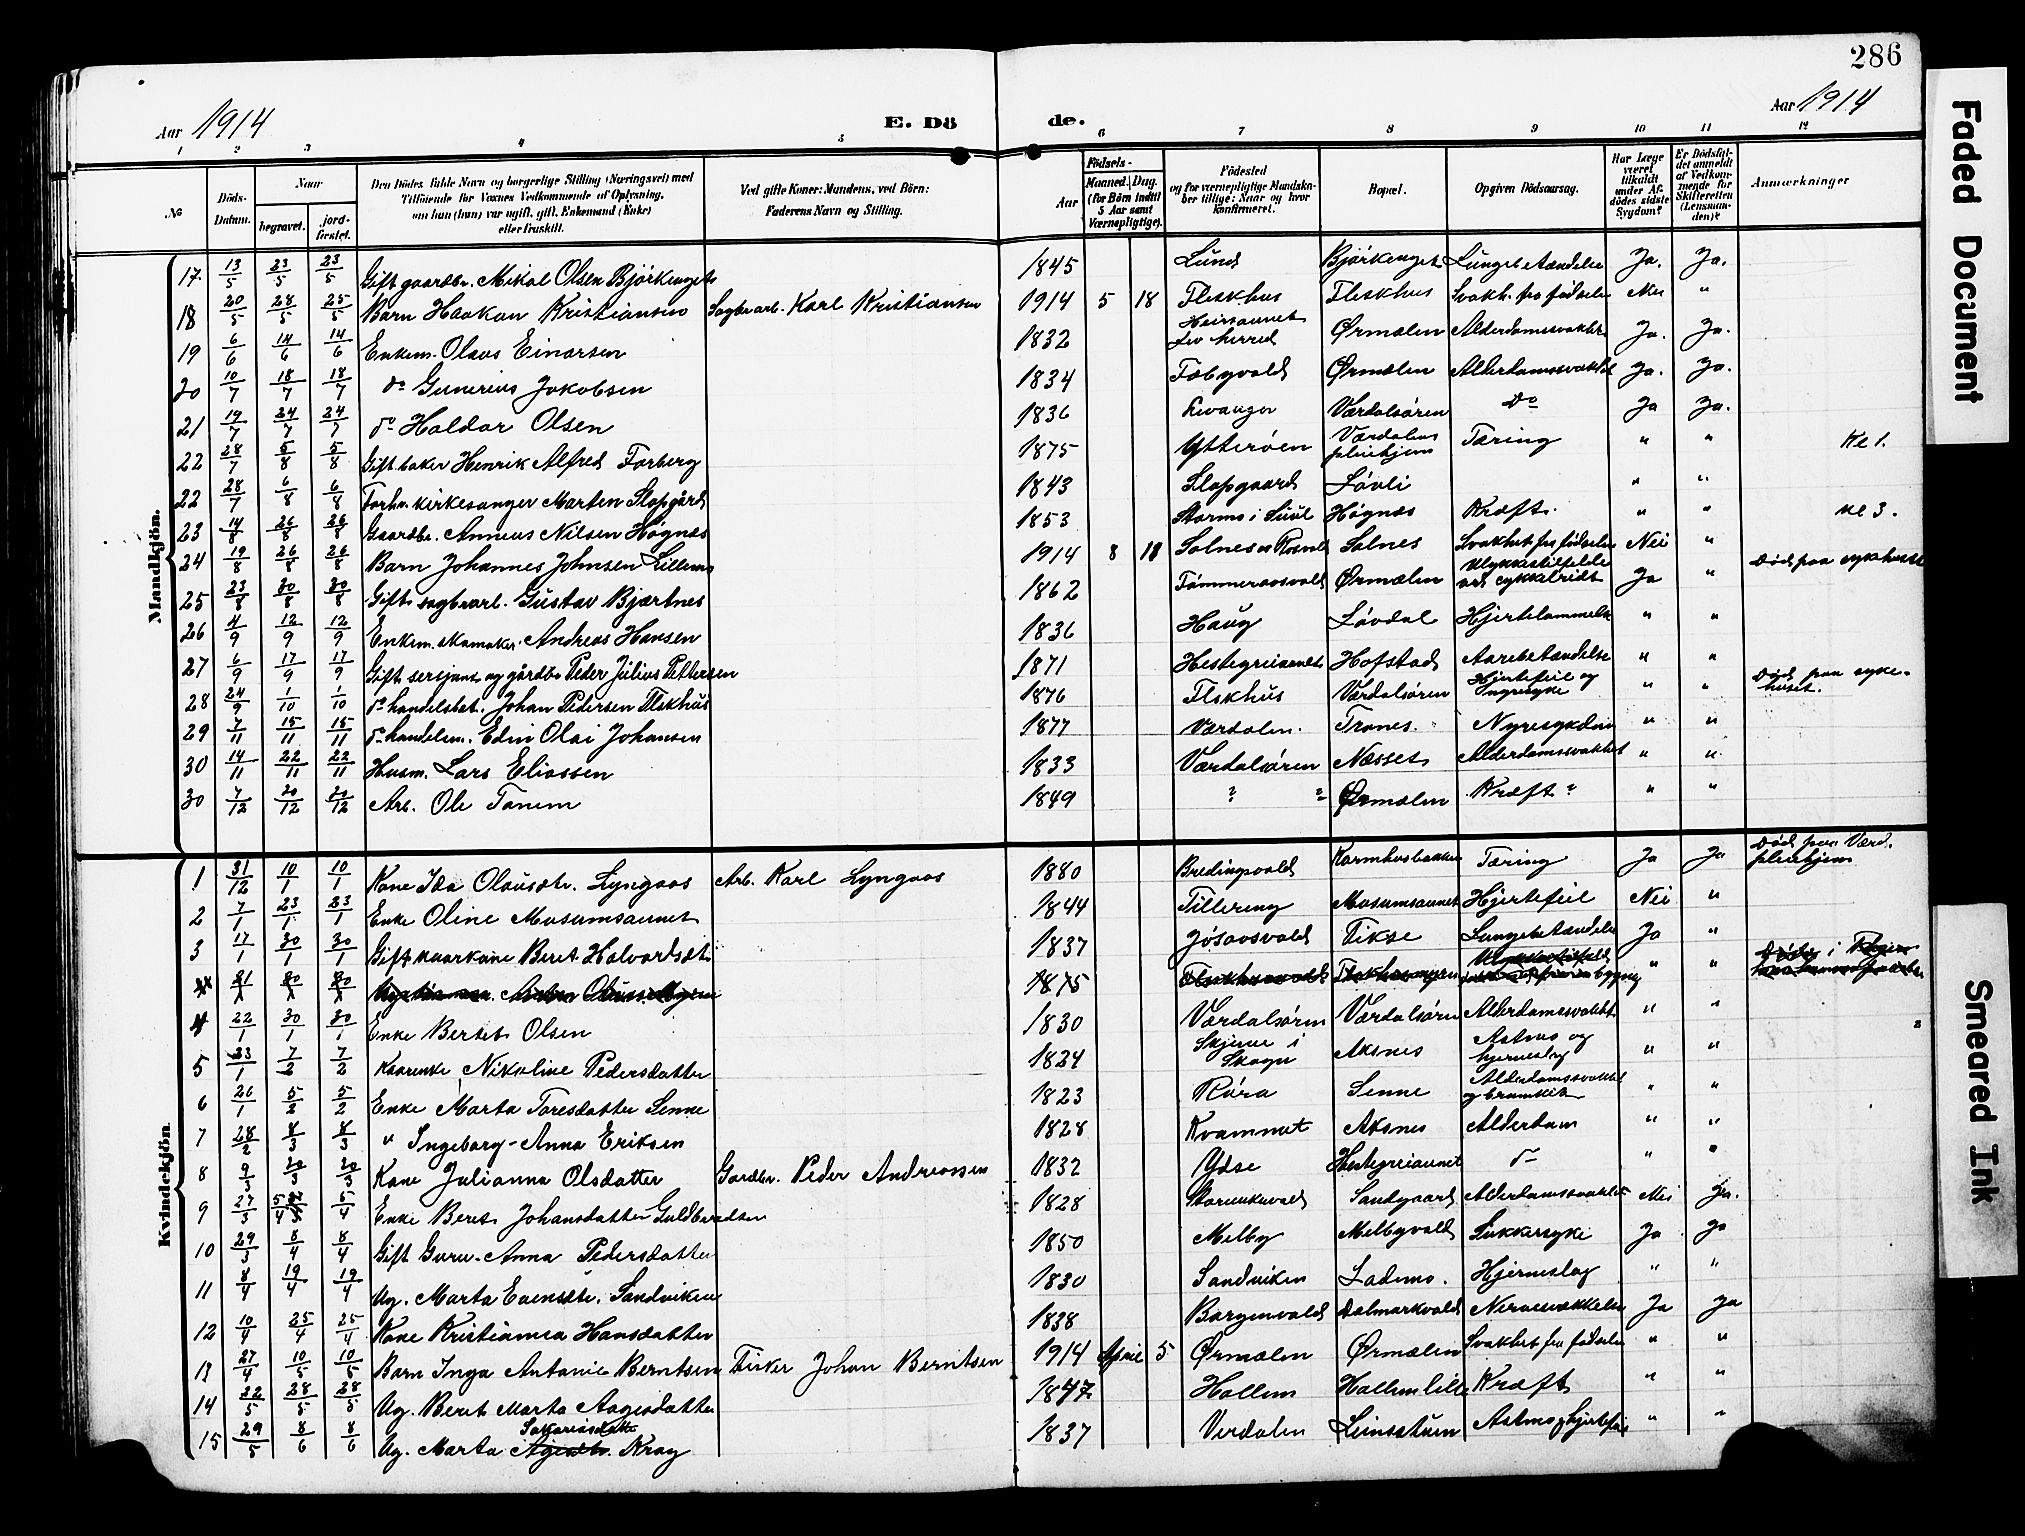 286
Aar 1914 E. Dö de. Aar 1914
1 2 3 4 5 6 7 8 9 10 11 12
No Döds-Datum. Naar begravet. jord-fæstet. Den Dödes fulde Navn og borgerlige Stilling (Næringsvei) med Tilföiende for Voxnes Vedkommende af Oplysning, om han (hun) var ugift, gift, Enkemand (Enke) eller fraskilt. Ved gifte Koner: Mandens, ved Börn: Faderens Navn og Stilling. Aar Födsels- Maaned. Dag. (for Börn indtil 5 Aar samt Værnepligtige). Födested og for værnepligtige Mandskaber tillige: Naar og hvor konfirmeret. Bopæl. Opgiven Dödsaarsag. Har Læge været tilkaldt under Afdödes sidste Sygdom? Er Dödsfaldet anmeldt af Vedkommende for Skifteretten (Lensmanden)? Anmærkninger
Mandkjön.
17 13/5 23/5 23/5 Gift gaardbr. Mikal Olsen Björkenget 1845 Lund Björkenget Lungebetændelse Ja. Ja.
18 20/5 28/5 25/5 Barn Haakon Kristiansen Sagbrarb. Karl Kristiansen 1914 5 18 Fleskhus Fleskhus Svakh. fra fødselen Nei "
19 6/6 14/6 14/6 Enkem. Olaus Einarsen 1832 Lev herred Ørmælen Alderdomssvakhet Ja. Ja.
20 10/7 18/7 18/7 do Gunerius Jakobsen 1834 Fæbyvald Ørmælen Alderdomssvakhet Ja. Ja.
21 19/7 24/7 24/7 do Haldor Olsen 1836 Levanger Værdalsøren Do Ja Ja.
22 28/7 5/8 5/8 Gift baker Henrik Alfred Forberg 1875 Ytterøen Værdalens pleiehjem Tæring " " Kl 1.
22 28/7 6/8 6/8 Forhv. kirkesanger Marten Slapgård 1843 Slapgaard Løvli " "
23 14/8 26/8 26/8 Gaardbr. Anneus Nilsen Høgnæs 1853 Stormo i Suul Høgnæs Kræft. " " Kl 3.
24 19/8 26/8 26/8 Barn Johannes Johnsen Lillemo 1914 8 18 Solnes Solnes Svakhet fra fødselen Nei "
25 23/8 30/8 30/8 Gift sagbrarb. Gustav Bjartnes 1862 Tømmeraasvald Ørmælen Ulykkestilfelde ved cykkelridt Ja " Død paa sykehuset
26 4/9 12/9 12/9 Enkem. skomaker. Andreas Hansen 1836 Haug Løvdal Hjertelammelse " "
27 6/9 17/9 17/9 Gift sersjant og gårdbr Peder Julius Pettersen 1871 Hestegreiaunet Hofstad Aarebetændelse " "
28 24/9 1/10 1/10 do handelsbet. Johan Pedersen Flekhus 1876 Flekhus Værdalsøren Hjertefeil og Nyresyke " " Død paa sykehuset.
29 7/11 15/11 15/11 do handelsm. Edin Olai Johansen 1877 Værdalen. Trones. Nyresykdom " "
30 14/11 22/11 22/11 Husm. Lars Eliassen 1833 Værdalsøren Næsset Alderdomssvakhet " "
30 7/12 20/12 20/12 Arb. Ole Tanem 1849 ? ? Ørmælen Kræft? " "
Kvindekjön.
1 31/12 10/1 10/1 Kone Ida Olausdtr. Lyngaas Arb. Karl Lyngaas 1880 Bredingsvald Kornhusbakken Tæring Ja Ja Død paa Værd. pleiehjem
2 7/1 23/1 23/1 Enke Oline Musumsaunet 1844 Tillering Musumsaunet Hjertefeil Nei "
3 17/1 30/1 30/1 Gift kaarkone Beret Halvardsdtr 1837 Jøsaasvald Fikse Lungebetændelse Ja "
21/1 30/1 30/1 1875 " "
4 22/1 30/1 30/1 Enke Beret Olsen 1830 Værdalsøren Værdalsøren Alderdomssvakhet " "
5 23/1 7/2 7/2 Kaarenke Nikoline Pedersdatter 1824 Skjerve i Skogn Aksnes Astma og hjerneslag " "
6 26/1 5/2 5/2 Enke Marta Toresdatter Senne 1823 Røra Senne Alderdomssvakhet " "
7 28/2 8/3 8/3 " Ingeborg-Anna Eriksen 1828 Kvammet Aksnes Alderdom " "
8 9/3 20/3 20/3 Kone Julianna Olsdatter Gardbr. Peder Andreassen 1832 Ydse Hestegreiaunet do " "
9 27/3 5/4 5/4 Enke Beret Johansdatter Guldbrandsen 1828 Sandgaard Alderdomssvakhet Nei Ja.
10 29/3 8/4 8/4 Gift Guru-Anna Pedersdatter 1850 Melby Melbyvald Sukkersyke Ja Ja
11 8/4 19/4 19/4 Ug. Marta Evensdtr. Sandviken 1830 Sandviken Lademo. Hjerneslag " "
12 10/4 25/4 25/4 Kone Kristianna Hansdatter 1838 Borgenvald Dalmarkvald Nervesvækkelse Ja Ja
13 27/4 10/5 10/5 Barn Inga Antonie Berntsen Fisker Johan Berntsen 1914 April 5 Ørmælen Ørmælen Svakhet fra fødselen " "
14 22/5 28/5 28/5 Ug. Beret Marta Aagesdatter 1847 Hallem Hallem lille Kræft " "
15 29/5 8/6 8/6 Ug. Marta Sakariasdatter Krag 1837 Verdalen Leinsstuen Astma og hjertefeil " "
Faded Document
Smeared Ink